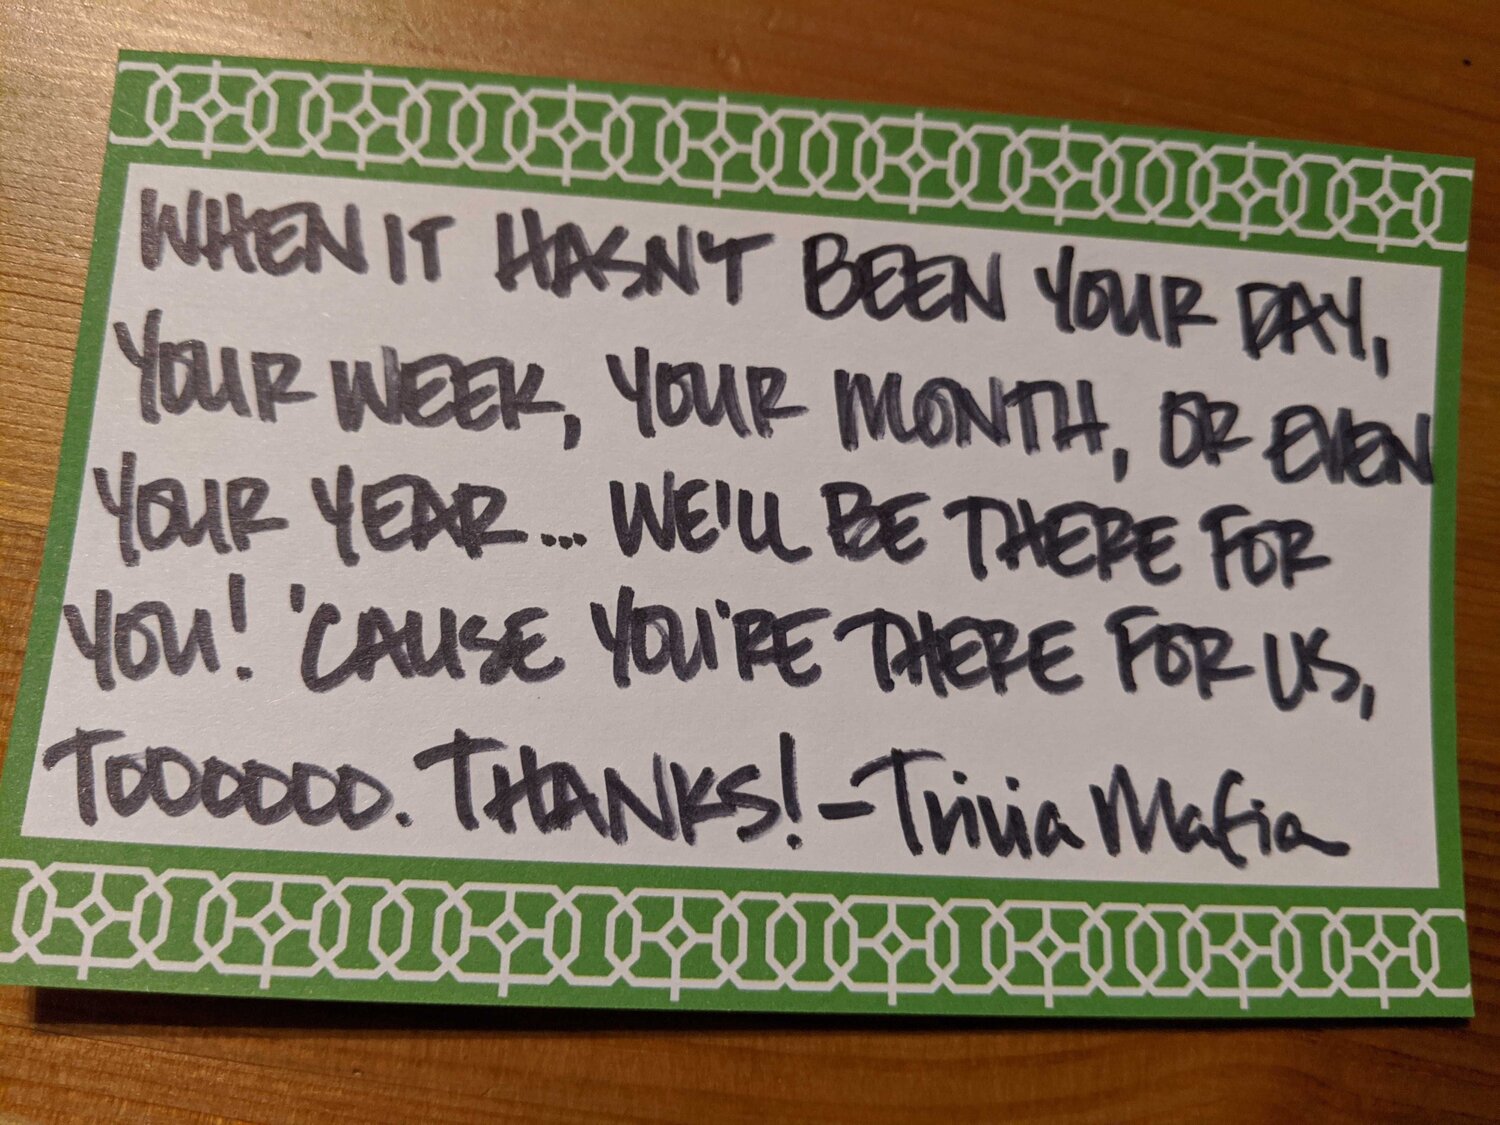 WHEN IT HASN'T BEEN YOUR DAY,
YOUR WEEK, YOUR MONTH, OR EVEN
YOUR YEAR... WE'LL BE THERE FOR
YOU! 'CAUSE YOU'RE THERE FOR US,
TOOOOOO. THANKS! -Trivia Mafia